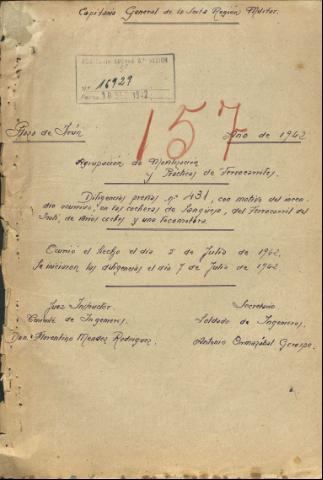 Capitanía General de la Sexta Región Militar.
Nº 16929
157
Plaza de Irún
Año de 1942
Agrupación de Movilización
y Prácticas de Ferrocarriles.
Diligencias previas nº 431, con motivo del incen-
dio ocurrido, en las cocheras de Sangüesa, del Ferrocarril del
Irati, de varios coches y una locomotora.
Ocurrió el hecho el día 5 de Julio de 1942.
Se iniciaron las diligencias el día 7 de Julio de 1942
Juez Instructor
Secretario
de Ingenieros.
Soldado de Ingenieros,
Don. Florentino Mendez Rodriguez.
Antonio Ormazábal Crespo.